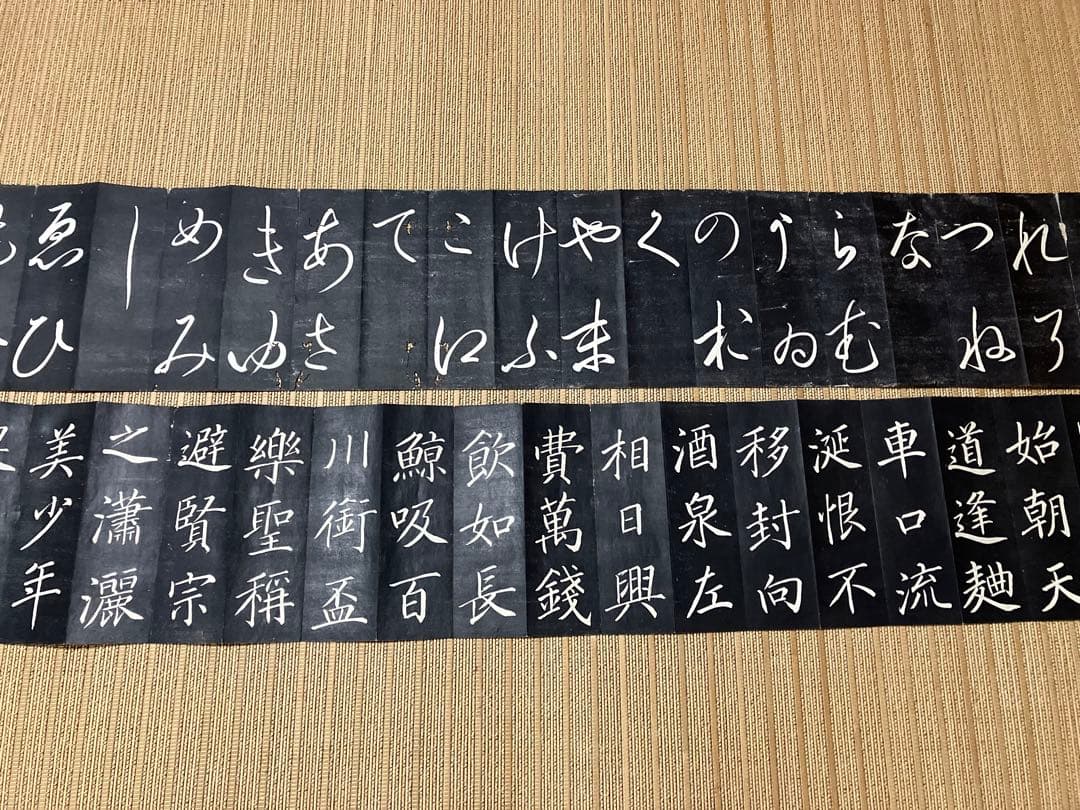 れそ
つね
な
らむ
うゐ
のお
く
やま
けふ
こえ
て
あさ
きゆ
めみ
し
ゑひ
始朝天
道逢麯
車口流
涎恨不
移封向
酒泉左
相日興
費萬錢
飲如長
鯨吸百
川銜盃
樂聖稱
避賢宗
之瀟灑
美少年